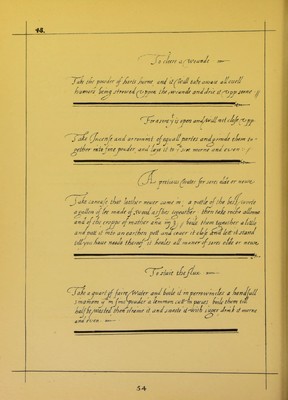 14.
To cleere a wounde
Take the powder of harts horne and it will take awaie all evell
humors being strowed uppon the wounde and drie it upp soone
For a sore yt is open and will not close upp.
Take Incense and arrement of equall portes and grinde them to=
gether into fine powder, and laye it to yt sore morne and even
A precious water for sores olde or newe
Take canvase that leather never came in, a pottle of the best, wrote
a gallon of lee made of wood ashes together then take roche allome
and of the croppes of mather ana boile them together a little
and putt it into an earthen pott and cover it close and let it stand
till you have neede therof it heales all maner of sores olde or newe.
To staie the flux
Take a quart of faire water and boile it in perrwinckles a handfull
sinamom fine powder a lemmon cutt in peices boile them till
half be wasted then straine it and sweete it with suger drink it morne
and even
54